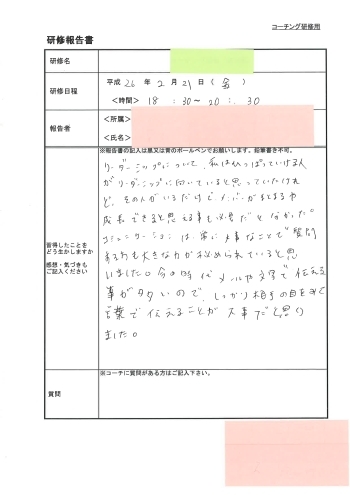 コーチング研修用
研修報告書
研修名
研修日程
平成 26 年 2 月 21 日 ( 金 )
<時間> 18 : 30 ~ 20 : 30
報告者
<所属>
<氏名>
※報告書の記入は黒又は青のボールペンでお願いします。鉛筆書き不可。
習得したことを
どう生かしますか
感想・気づきも
ご記入ください
リーダーシップについて、私はひっぱっていける人
がリーダーシップに向いていると思っていたけれ
ど、その人がいるだけでメンバーがまとまるや
成長できると思える事も必要だと分かった。
コミュニケーションは常に大事なことで質問
する力も大きな力が込められていると思
いました。今の時代メールや文字で伝える
事が多いので、しっかり相手の目をみて
言葉で伝えることが大事だと思い
ました。
質問
※コーチに質問がある方はご記入下さい。